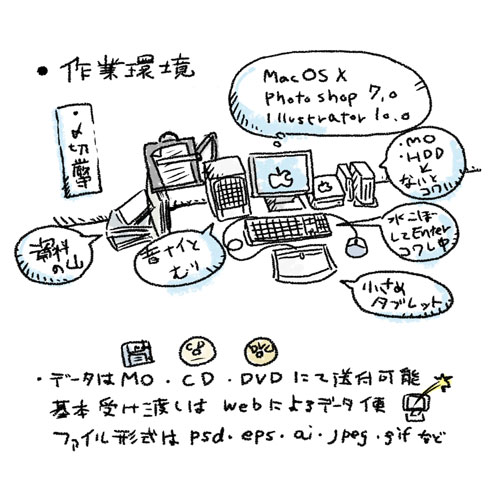 ・作業環境
MacOSX
Photoshop 7.0
Illustrator 10.0
・〆切等
・MO
・HDD
ないと
コワい
資料
の山
音ナイと
むり
水こぼ
してEnter
コワレ中
小さめ
タブレット
CD
DVD
・データはMO・CD・DVDにて送付可能
基本受け渡しはwebによるデータ便
ファイル形式はpsd・eps・ai・jpeg・gifなど